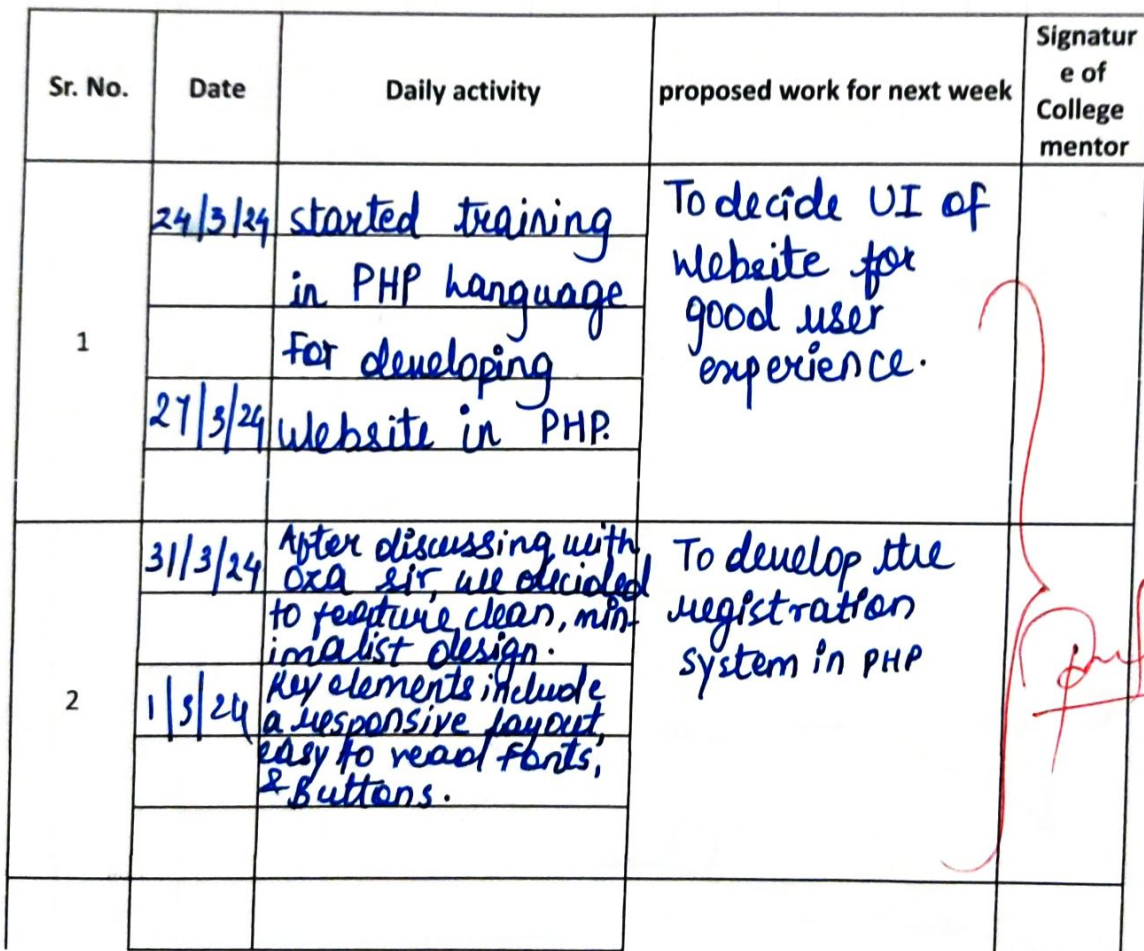 Sr. No. Date Daily activity proposed work for next week Signatur
e of
College
mentor
1
24/3/24 started training
in PHP Language
for developing
27/3/24 website in PHP.
To decide UI of
website for
good user
experience.
2
31/3/24 After discussing with
oza sir, we decided
to feature clean, min-
imalist design.
1/3/24 Key elements include
a responsive layout,
easy to read fonts,
& Buttons.
To develop the
registration
system in PHP